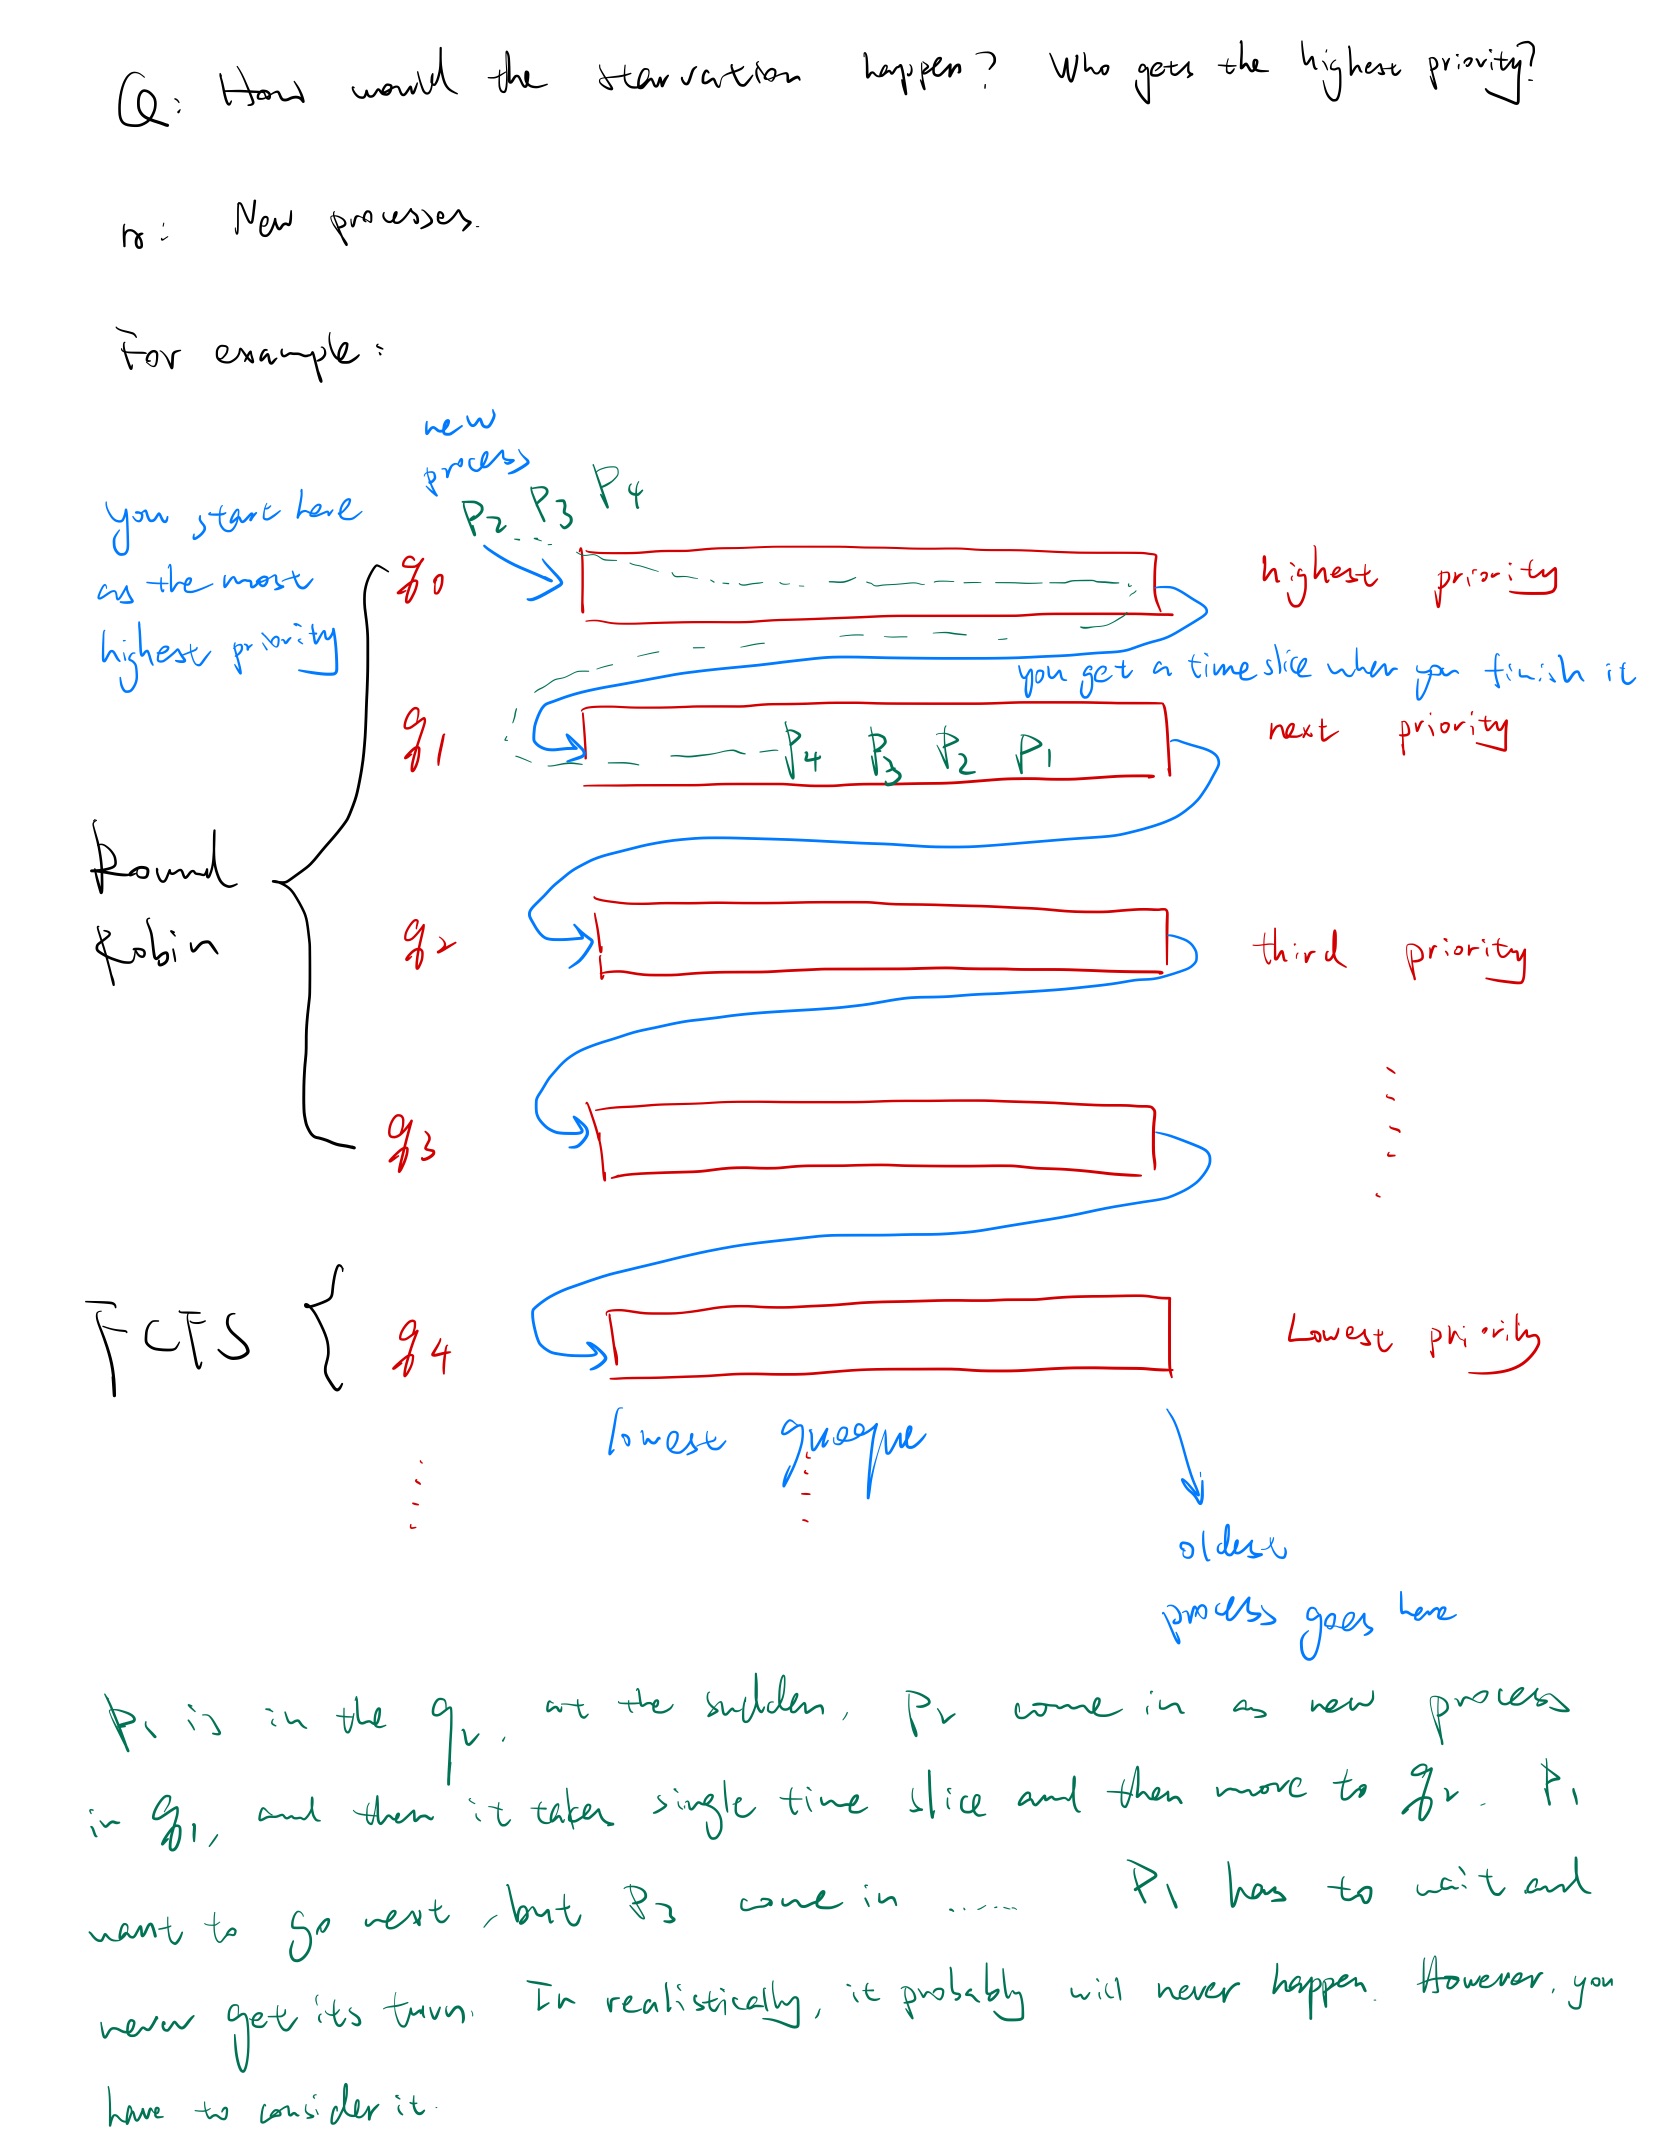 Q: How would the starvation happen? Who gets the highest priority?
New processes.
For example:
new
process
P2 P3 P4
you start here
as the most
highest priority
q0
highest priority
you get a time slice when you finish it
q1
P4 P3 P2 P1
next priority
Round
Robin
q2
third priority
q3
FCFS
q4
Lowest priority
lowest queque
oldest
process goes here
P1 is in the q2, at the sudden, P2 come in as new process
in q1, and then it takes single time slice and then move to q2. P1
want to go next, but P3 come in ...... P1 has to wait and
never get its turn. In realistically, it probably will never happen. However, you
have to consider it.